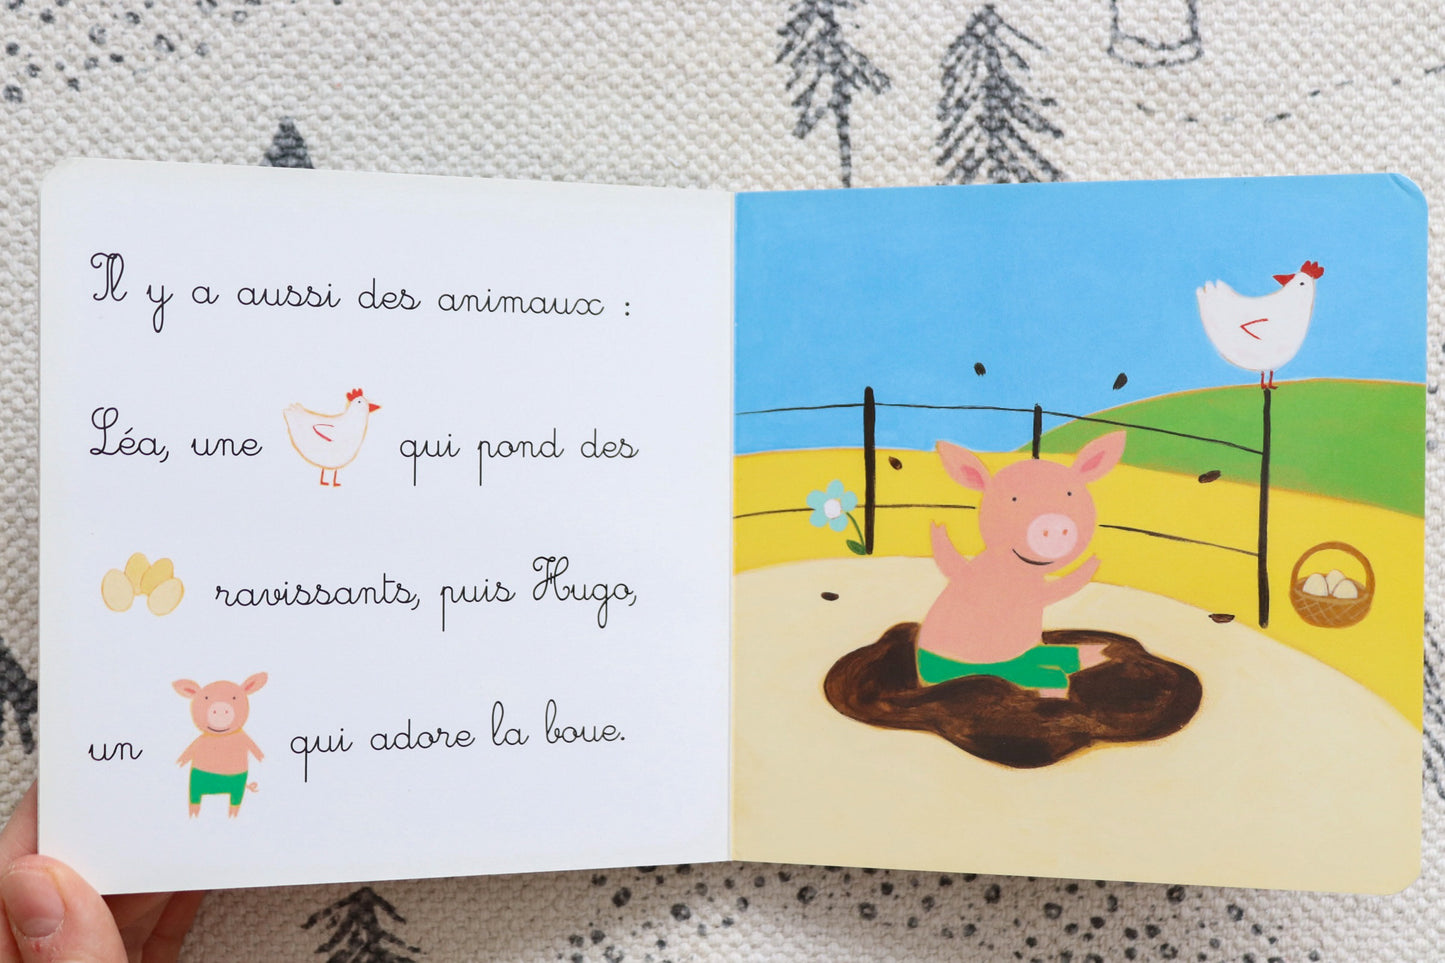 Il y a aussi des animaux :
Léa, une qui pond des
ravissants, puis Hugo,
un qui adore la boue.